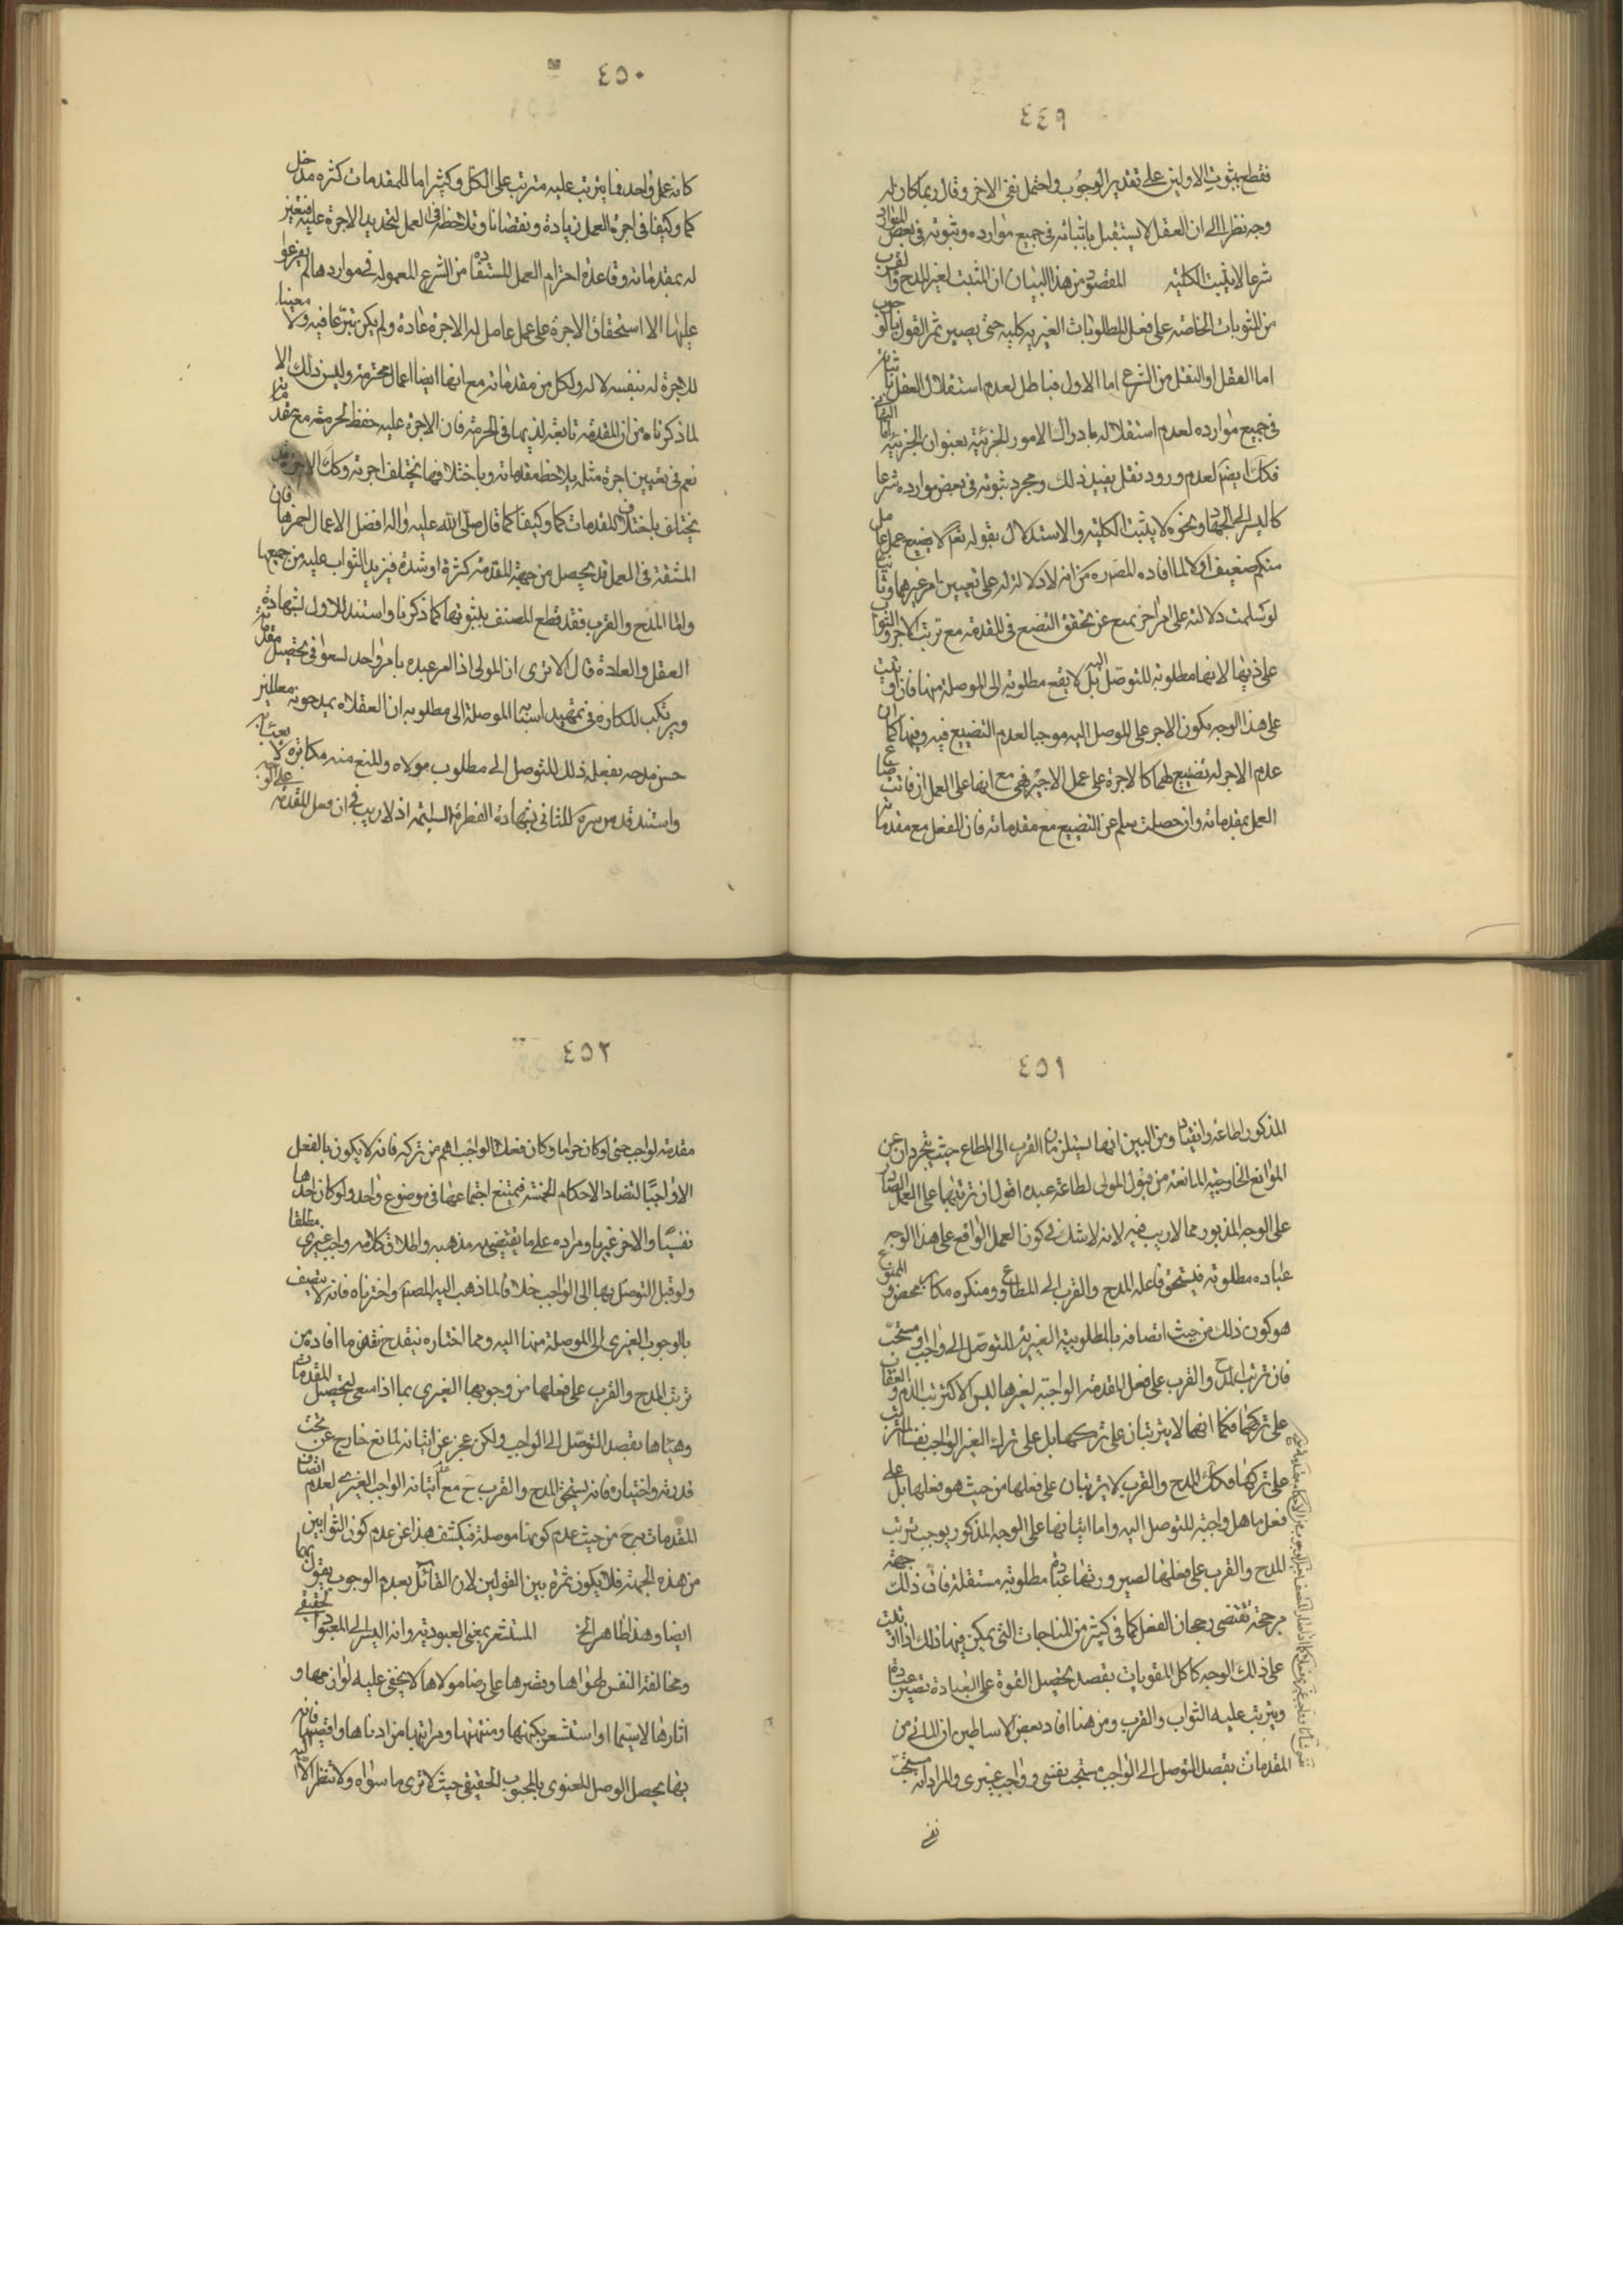 ٤٤٩
فقطع بثبوت الاولين على تقدير الوجوب واحتمل نفى الاخر وقال ربما كان له
وجه نظرا الى ان العقل لا يستقل باثباته فى جميع موارده وثبوته فى بعض الموارد
شرعا لا يثبت الكلية المقصود من هذا البيان ان المثبت لغير المدح والقرب
من المثوبات الخاصة على فعل المطلوبات الغيرية كلية حتى يصير ثمر القول بالوجوب
اما العقل او النقل من الشرع اما الاول فباطل لعدم استقلال العقل باثباته
فى جميع موارده لعدم استقلاله بادراك الامور الجزئية بعنوان الجزئية اما الثانى
فكك ايضا لعدم ورود نقل يفيد ذلك ومجرد ثبوته فى بعض موارده شرعا
كالسير الى الجهاد ونحوه لا يثبت الكلية والاستدلال بقوله تع لا اضيع عمل عامل
منكم ضعيف اولا لما افاده المص ره من انه لا دلالة له على تعيين امر غيرهما وثانيا
لو سلمت دلالته على امر اخر نمنع عن تحقق التضيع فى المقدمة مع ترتب الاجر والثواب
على ذيها لانها مطلوبة للتوصل اليه بل لا يقع مطلوبة الا الموصلة منها فان اثيب
على هذا الوجه يكون الاجر على الموصل اليه موجبا لعدم التضييع فيه وفيها كما ان
عدم الاجر له تضييع لهما كالاجرة على عمل الاجير فهى مع انها على العمل ان فاتت ضاع
العمل بمقدماته وان حصلت سلم عن التضييع مع مقدماته فان الفعل مع مقدماته
٤٥٠
كانه عمل واحد فما يترتب عليه مترتب على الكل وكثيرا ما للمقدمات كثره مدخل
كما وكيفا فى اجرة العمل زيادة ونقصانا وتلاحظ فى العمل لتحديد الاجرة عليه فتعين
له بمقدماته وقاعدة احترام العمل المستفاده من الشرع المعموله فى مواردها لم يفرعوا
عليها الا استحقاق الاجرة على عمل عامل له الاجرة عادة ولم يكن تبرعا فيه ولا معينا
للاجرة له بنفسه لا له ولكل من مقدماته مع انها ايضا اعمال محترمة وليس ذلك الا
لما ذكرناه من ان المقدمة تابعة لذيها فى الحرمة فان الاجرة عليه حفظ لحرمته مع مقدماته
نعم فى تعيين اجرة مثله يلاحظ مقدماته وباختلافها يختلف اجرته وكك الاجر قد
يختلف باختلاف المقدمات كما وكيفا كما قال صلى الله عليه واله افضل الاعمال احمزها فان
المشقة فى العمل قد يحصل من جهة المقدمة كثرة او شدة فيزيد الثواب عليه من جميعها
واما المدح والقرب فقد قطع المصنف بثبوتهما كما ذكرنا واستند للاول بشهادة
العقل والعادة قال الا ترى ان المولى اذا امر عبده بامر واحد لسعوا فى تحصيل مقدماته
ويرتكب المكاره فى تمهيد اسبابه الموصلة الى مطلوبه ان العقلاء يمدحونه معللين
حسن مدحه بفعله ذلك للتوصل الى مطلوب مولاه والمنع منه مكابرة لا يعبا به
واستند قدس سره للثانى بشهادة الفطرة السليمة اذ لا ريب فى ان فعل المقدمة على الوجه
٤٥١
المذكور اطاعة وانقياد ومن البين انهما يستلزمان القرب الى المطاع حيث يتجردان عن
الموانع الخارجية المانعة من قبول المولى لطاعة عبده اقول ان ترتبهما على العمل الصادر
على الوجه المذبور مما لا ريب فيه لانه لا شك فى كون العمل الواقع على هذا الوجه
عباده مطلوبة فيستحق فاعله المدح والقرب الى المطاع ومنكره مكابر محض والممنوع
هو كون ذلك من حيث اتصافه بالمطلوبية الغيرية للتوصل الى واجب او مستحب
فان ترتب المدح والقرب على فعل المقدمة الواجبة لغيرها ليس الا كترتب الذم والعقاب
على تركها فكما انهما لا يترتبان على تركها بل على ترك الغير الواجب بنفسه المترتب
على تركها فكك المدح والقرب لا يترتبان على فعلها من حيث هو فعلها بل على
فعل ما هى واجبة للتوصل اليه واما اتيانها على الوجه المذكور يوجب ترتب
المدح والقرب على فعلها لصيرورتها عبادة مطلوبة مستقلة فان ذلك جهة
مرجحة تقتضى رجحان الفعل كما فى كثير من المباحات التى يمكن فيها ذلك اذا اتيت
على ذلك الوجه كاكل المقويات بقصد تحصيل القوة على العبادة تصير عبادة
ويترتب عليه الثواب والقرب ومن هنا افاد بعض الاساطين ان المأتى من
المقدمات بقصد التوصل الى الواجب مستحب نفسى وواجب غيرى والمراد انه مستحب
نفسى
٤٥٢
مقدمة لواجب حتى لو كان حراما وكان فعل الواجب اهم من تركه فانه لا يكون بالفعل
الا واجبا لتضاد الاحكام الخمسة فيمتنع اجتماعها فى موضوع واحد ولو كان احدها
نفسيا والاخر غيريا ومراده على ما يقتضيه مذهبه واطلاق كلامه واجب غيرى مطلقا
ولو قبل التوصل بها الى الواجب خلافا لما ذهب اليه المصنف واخترناه فانه لا يتصف
بالوجوب الغيرى الا الموصلة منها اليه ومما اختاره ينقدح نقض ما افاده من
ترتب المدح والقرب على فعلها من وجوبها الغيرى بما اذا سعى لتحصيل المقدمات
وهياها بقصد التوصل الى الواجب ولكن عجز عن اتيانه لمانع خارج عن تحت
قدرته واختياره فانه يستحق المدح والقرب ح مع عدم اتيانه الواجب الغيرى لعدم اتصاف
المقدمات به ح من حيث عدم كونها موصلة فيكشف هذا عن عدم كون الثوابين
من هذه الجهة فلا يكون ثمرة بين القولين لان القائل بعدم الوجوب يقول بهما
ايضا وهذا ظاهر الخ المستشعر بمعنى العبودية وانه السير الى المعبود الحقيقى
ومخالفة النفس لهواها وقصرها على رضا مولاها لا يخفى عليه لوازمها و
اثارها لا سيما اذا استشعر بكمنها ومنتهيها ومراتبها من ادناها واقصيها فانه
بها يحصل الوصل المعنوى بالمحبوب الحقيقى حيث لا ترى ما سواه ولا تنظر الا اليه